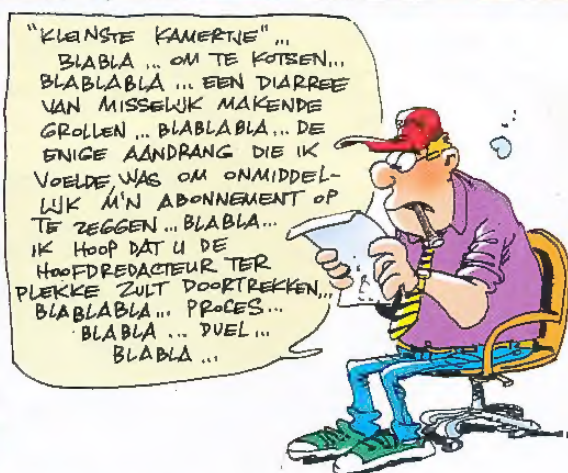 "KLEINSTE KAMERTJE"...
BLABLA ... OM TE KOTSEN...
BLABLABLA ... EEN DIARREE
VAN MISSELIJK MAKENDE
GROLLEN ... BLABLABLA... DE
ENIGE AANDRANG DIE IK
VOELDE WAS OM ONMIDDEL-
LIJK M'N ABONNEMENT OP
TE ZEGGEN ... BLABLA...
IK HOOP DAT U DE
HOOFDREDACTEUR TER
PLEKKE ZULT DOORTREKKEN...
BLABLABLA... PROCES...
BLABLA ... DUEL...
BLABLA ...